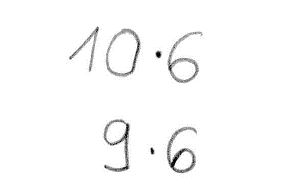 10·6
9·6